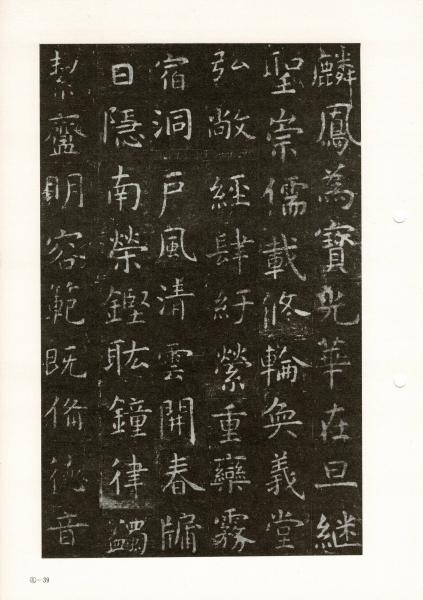 麟鳳為寶光華在旦継
聖崇儒載修輪奐義堂
弘敞經肆紆縈重欒霧
宿洞戶風清雲開春牖
日隱南榮鏗耾鐘律蠲
絜齍明容範既俻德音
39